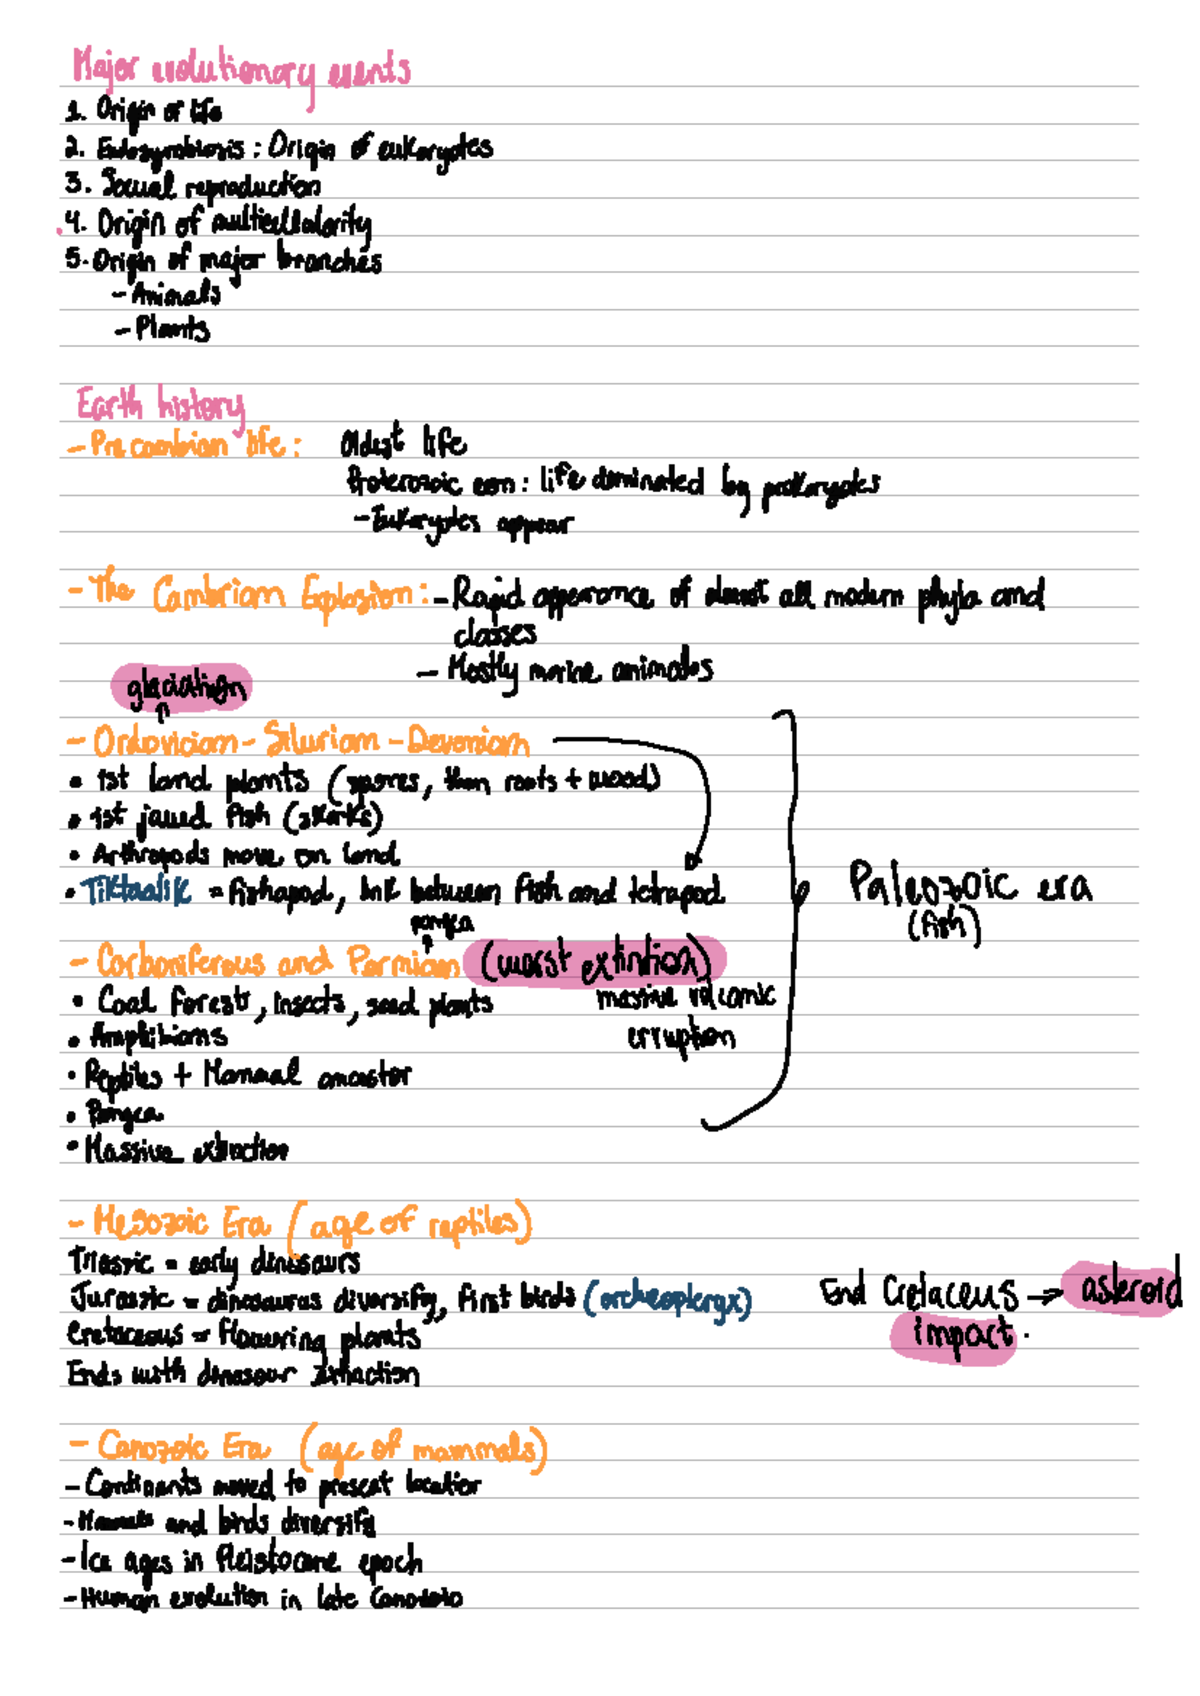 Major evolutionary events
1. Origin of life
2. Endosymbiosis : Origin of eukaryotes
3. Sexual reproduction
4. Origin of multicellularity
5. Origin of major branches
- Animals
- Plants
Earth history
- Precambian life : Oldest life
Proterozoic eon : life dominated by prokaryotes
- Eukaryotes appear
- The Cambrian Explosion : - Rapid appearance of almost all modern phyla and
classes
- Mostly marine animales
glaciation
- Ordovician - Silurian - Devonian
• 1st land plants (spores, then roots + wood)
• 1st jawed fish (sharks)
• Arthropods move on land
• Tiktaalik = fishapod, link between fish and tetrapod
Paleozoic era
(fish)
pangea
- Carboniferous and Permian (worst extintion)
massive volcanic
erruption
• Coal forests, insects, seed plants
• Amphibians
• Reptiles + Mammal ancestor
• Pangea
• Massive extinction
- Mesozoic Era (age of reptiles)
Triassic = early dinosaurs
Jurassic = dinosauras diversify, first birds (archeopteryx)
Cretaceous = flowering plants
Ends with dinasour extinction
End Cretaceus → asteroid
impact.
- Canozoic Era (age of mammals)
- Continants moved to present location
- Mammals and birds diversify
- Ice ages in Pleistocene epoch
- Human evolution in late